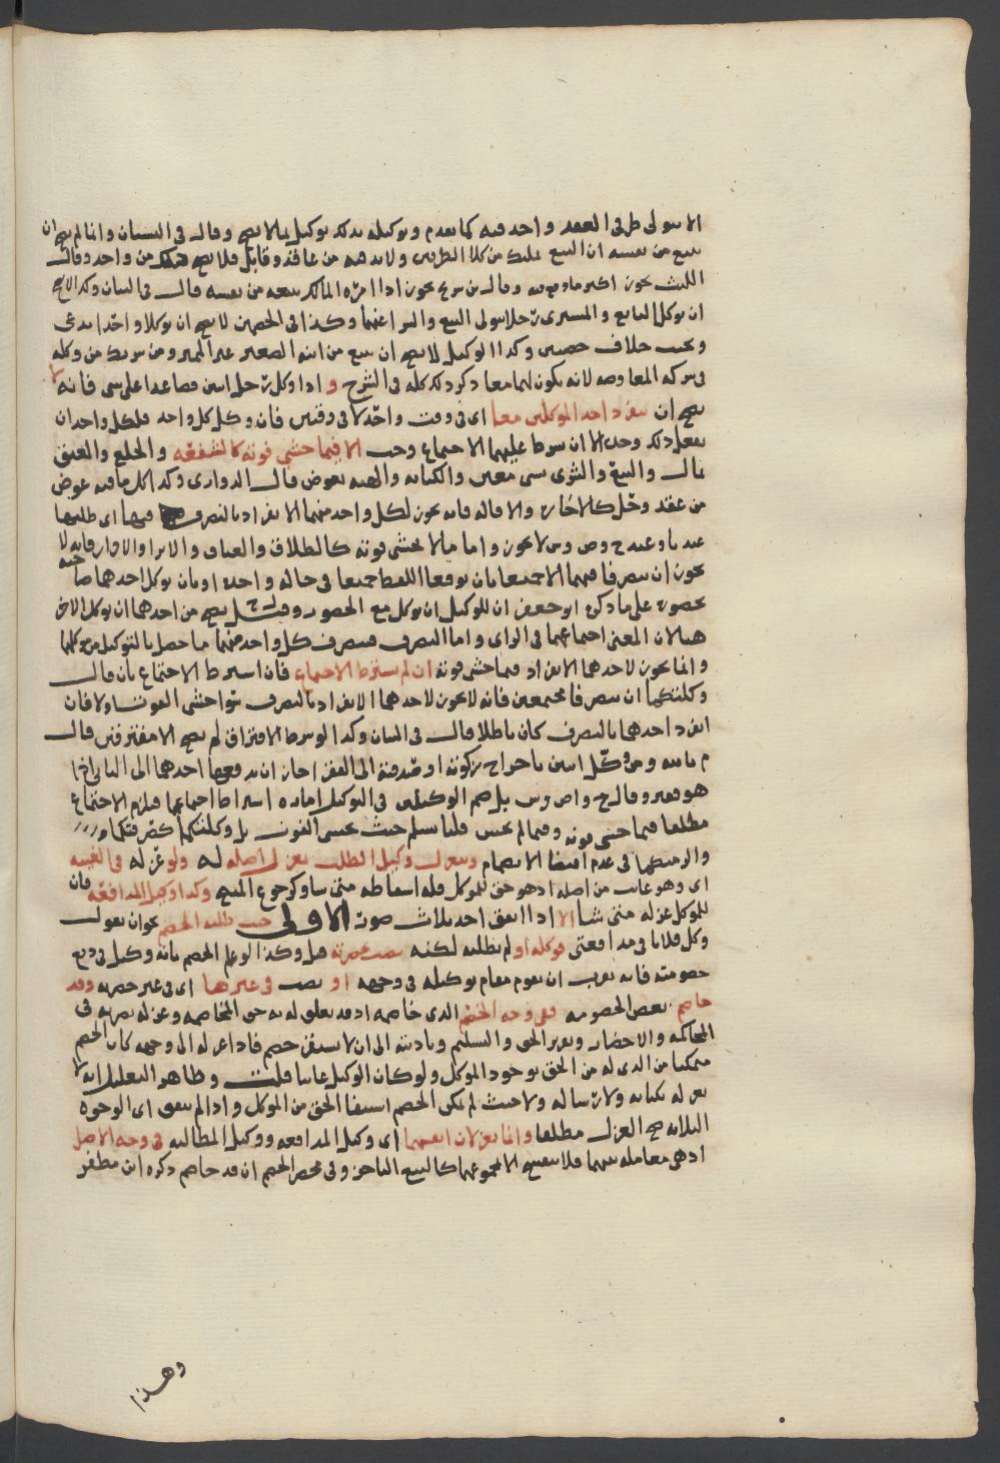 الا يتولى طرفي العقد واحد فيه كما تقدم وتوكيله بذلك توكيل بما لا يصح وقال في البستان وانما لم يصح ان
يبيع من نفسه ان البيع تمليك من كلا الطرفين ولا بد فيه من عاقد وقابل فلا يصح من واحد وقال
الليث يجوز وقال يجوز اذا امره المالك ببيعه من نفسه قال في البيان وكذا لا يصح
ان يوكل البايع والمشتري رجلا يتولى البيع والشرا عنهما وكذا في الخصمين لا يصح ان يوكلا واحدا يدعي
ويجيب خلاف وكذا الوكيل لا يصح ان يبيع من ابنه الصغير غير المميز ومن شريك من وكله
في شركه المفاوضه لانه يكون لهما معا ذكر ذلك كله في الشرح و اذا وكل رجل اثنين فصاعدا على شي فانه
يصح ان ينفرد احد الموكلين معا اي في وقت واحد لا في وقتين فان وكل كل واحد فلكل واحد ان
يفعل ذلك وحده الا ان شرط عليهما الاجتماع وجب الا فيما خشي فوته كالشفعه والخلع والعتق
بمال والبيع والشرى شي معين والكتابه والهبه بعوض قال الدواري وكذا كل ما فيه عوض
من عقد وحل كالاجاره والاقاله فانه يجوز لكل واحد منهما الانفراد بالتصرف فيها اي طلبها
عند وعند لا يجوز واما ما لا يخشى فوته كالطلاق والعتاق والابرا والاقرار فانه لا
يجوز ان يتصرفا فيهما الا مجتمعا بان يوقعا اللفظ جميعا في حاله واحده او بان يوكل احدهما صاحبه
بحضوره على ما ذكره ابو جعفر ان للوكيل ان يوكل مع الحضور وقيل يصح من احدهما ان يوكل الاخر
هنا لان المعنى اجتماعهما في الراي واما التصرف فيتصرف كل واحد منهما ما حصل بالتوكيل من موكلهما
وانما يجوز لاحدهما الانفراد فيما خشي فوته ان لم يشترط الاجتماع فان اشترط الاجتماع بان قال
وكلتكما ان يتصرفا مجتمعين فانه لا يجوز لاحدهما الانفراد بالتصرف سوا خشي الفوت او لا فان
انفرد احدهما بالتصرف كان باطلا قال في البيان وكذا لو شرط الافتراق لم يصح الا مفترقين قال
م بالله ومن وكل اثنين باخراج زكوته او صدقته الى الفقرا جاز ان يدفعها احدهما الى الثاني اذا
هو فقير وقال ح واص وش بل ضم الوكيلين في التوكيل اماره اشتراط اجماعهما فيلزم الاجتماع
مطلقا فيما خشي فوته وفيما لم يخش قلنا نسلم حيث لم يخش الفوت بل وكلتكما كضرفتكما
والزمتكما في عدم اقتضا الانضمام وينعزل وكيل الطلب بعزل اصله له ولو عزله في الغيبه
اي وهو غايب من اصله اذ هو حق للموكل فله اسقاطه متى شا وكرجوع المبيح وكذا وكيل المدافعه فان
للموكل عزله متى شا الا اذا اتفق احد ثلاث صور الاولى حيث طلبه الخصم نحو ان يقول
وكل فلانا في مدافعتي فوكله او لم يطلبه لكنه نصب بحضرته قيل وكذا لو علم الخصم بانه وكيل في دفع
خصومته فانه يقرب ان يقوم مقام توكيله في وجهه او نصب في غيرها اي في غير حضرته وقد
خاصم بعض الخصومه ففي وجه الخصم الذي خاصمه اذ قد تعلق له به حق المخاصمه وعزله يضر به في
المحاكمه والاحضار وتقرير الحق والتسليم وتاديته الى ان لا يستقر خصم فاذا عزله الى وجهه كان الخصم
متمكنا من الذي له من الحق بوجود الموكل ولو كان الوكيل غايبا قلت وظاهر التعليل انه لا
يعزله بكتابه ولا رساله ولا حيث لم يمكن الخصم استيفا الحق من الموكل واذا لم يتفق اي الوجوه
الثلاثه صح العزل مطلقا وانما يعزلان انفسهما اي وكيل المدافعه ووكيل المطالبه في وجه الاصل
اذ هي معامله بينهما فلا ينفسخ الا بمجموعهما كالبيع الناجز وفي محضر الخصم ان قد خاصم ذكره ابن مظفر
وهذا